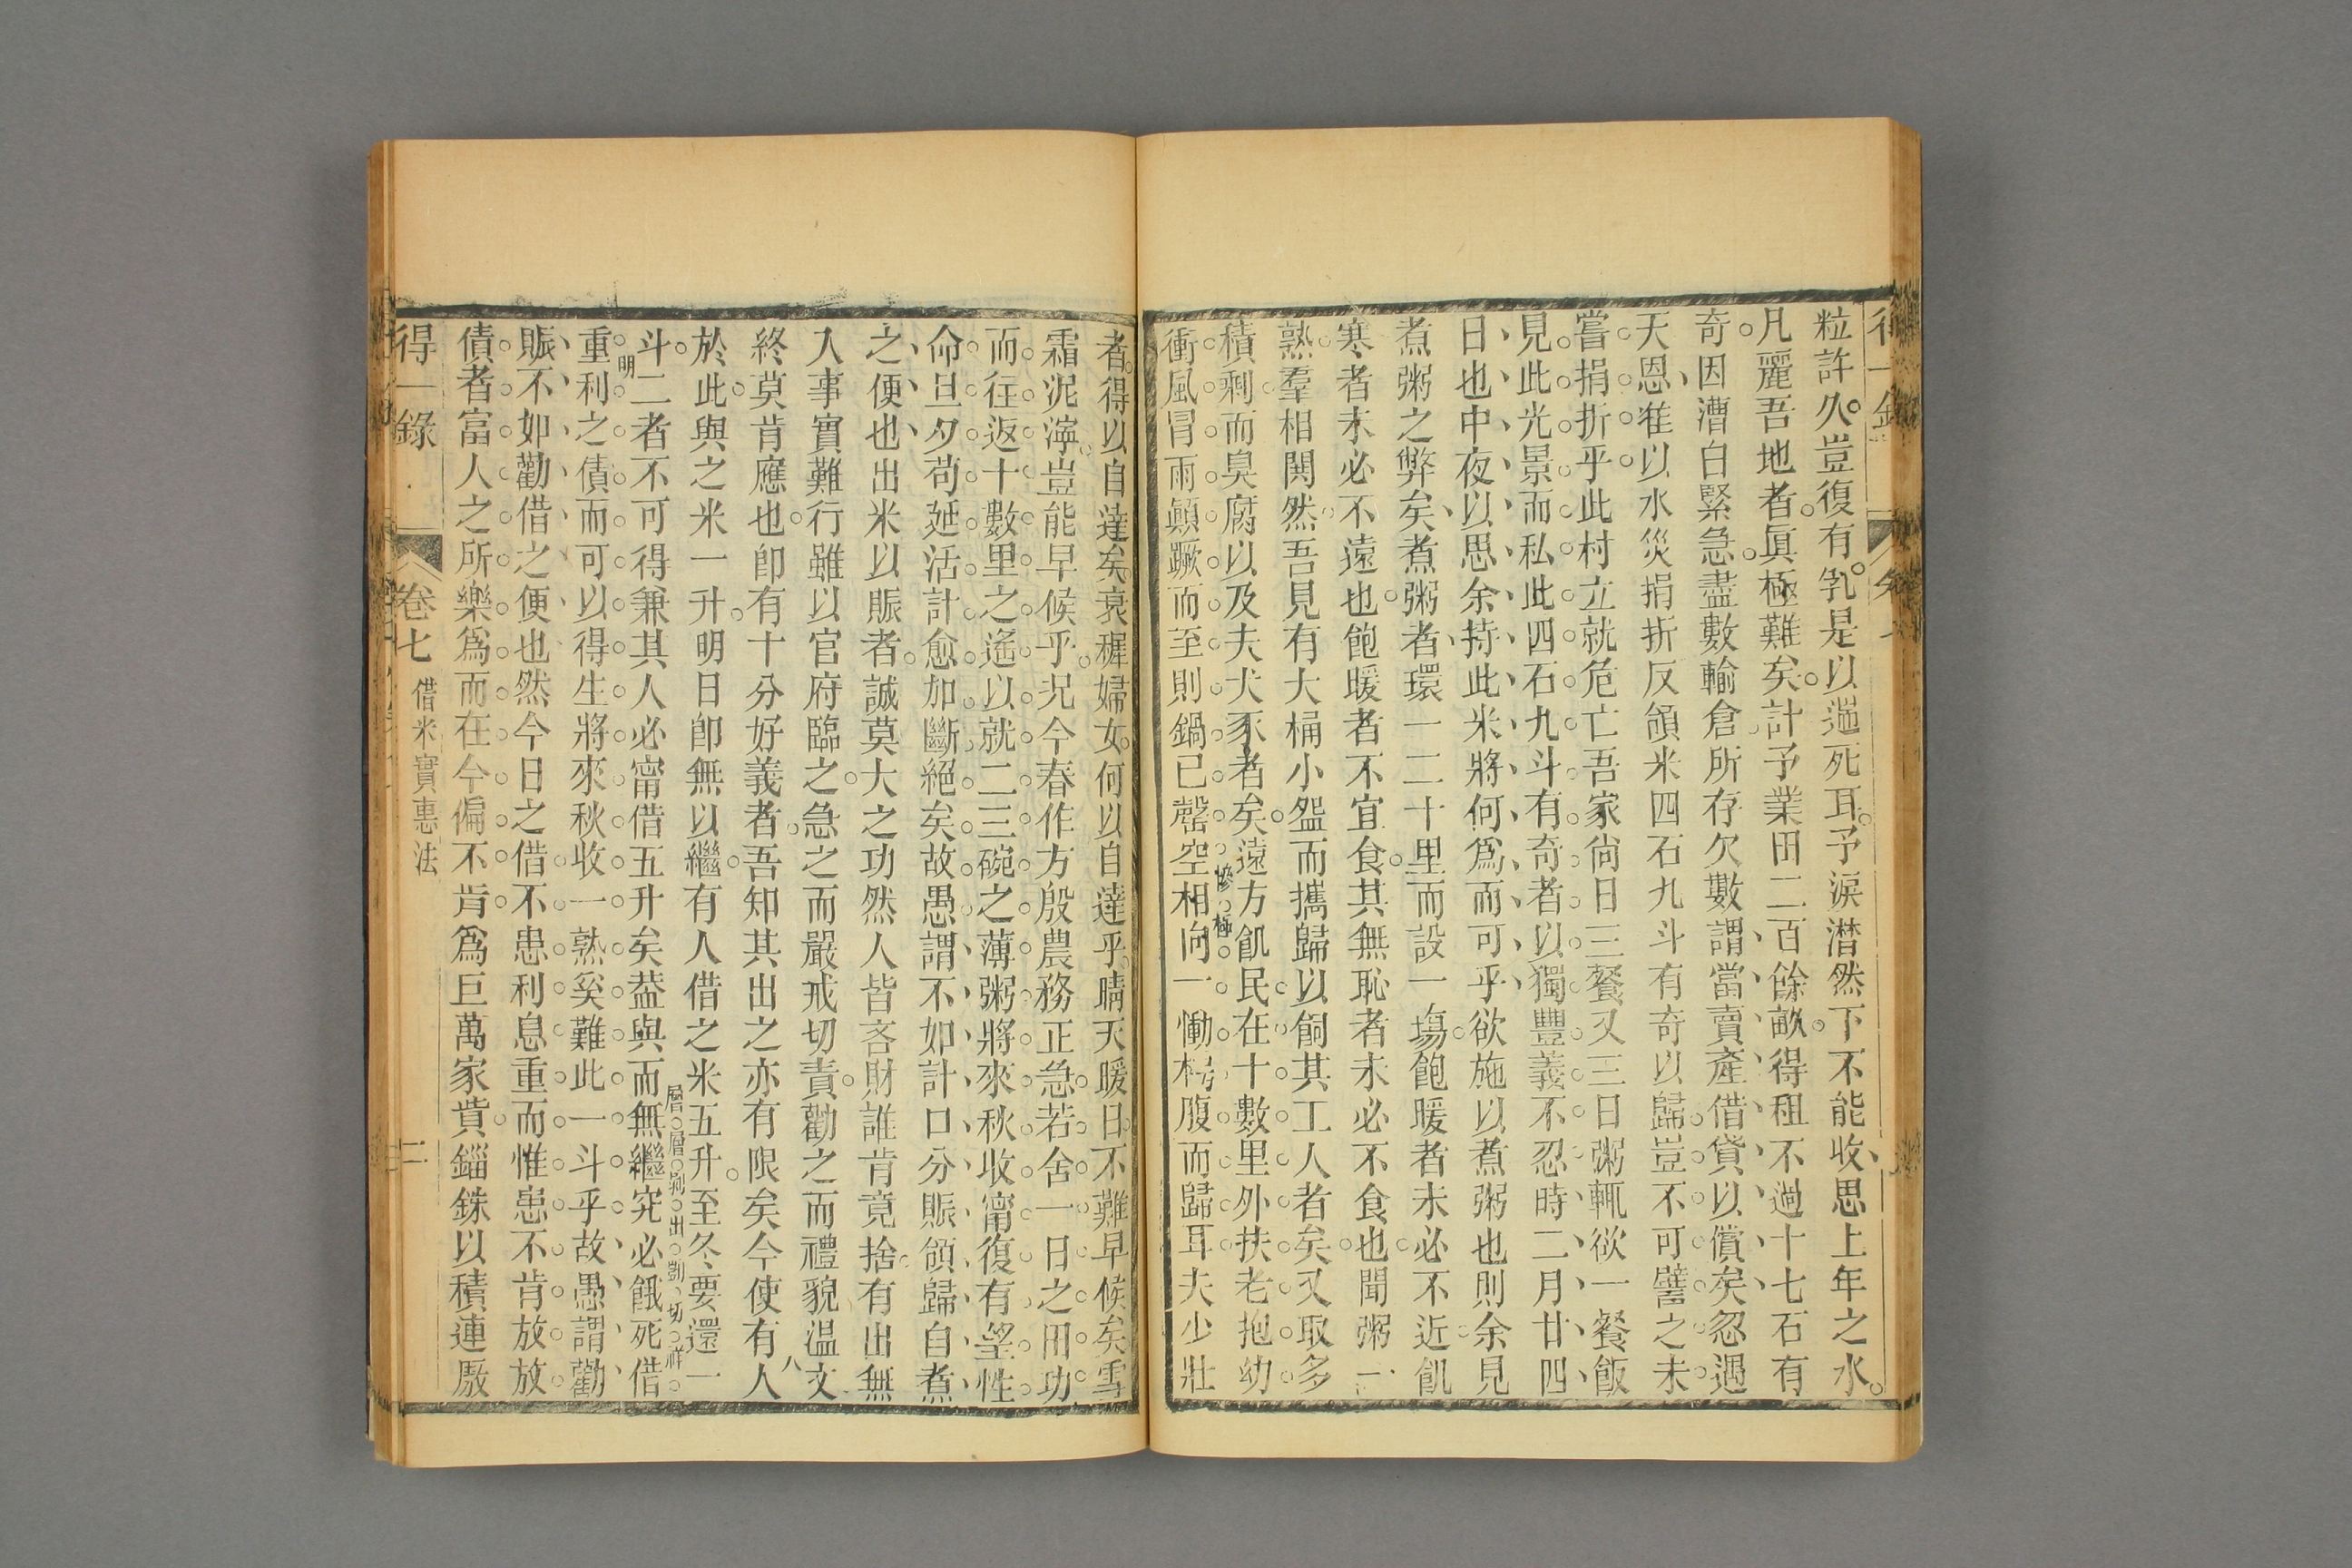 粒許久豈復有乳是以遄死耳予淚潸然下不能收思上年之水
凡麗吾地者眞極難矣計予業田二百餘畝得租不過十七石有
奇因漕白緊急盡數輸倉所存欠數謂當賣產借貸以償矣忽遇
天恩隹以水災捐折反領米四石九斗有奇以歸豈不可譬之未
嘗捐折乎此村立就危亡吾家尙日三餐又三日粥輒欲一餐飯
見此光景而私此四石九斗有奇者以獨豐義不忍時二月廿四
日也中夜以思余持此米將何爲而可乎欲施以煮粥也則余見
煮粥之弊矣煮粥者環一二十里而設一塲飽暖者未必不近飢
寒者未必不遠也飽暖者不宜食其無恥者未必不食也聞粥一
熟羣相鬨然吾見有大桶小盌而攜歸以飼其工人者矣又取多
積剩而臭腐以及夫犬豕者矣遠方飢民在十數里外扶老抱幼
慘極
衝風冒雨顚蹶而至則鍋已罄空相向一慟枵腹而歸耳夫少壯
得一錄
者得以自達矣衰穉婦女何以自達乎晴天暖日不難早候矣雪
霜泥濘豈能早候乎况今春作方殷農務正急若舍一日之田功
而往返十數里之遙以就二三碗之薄粥將來秋收甯復有望性
命旦夕苟延活計愈加斷絕矣故愚謂不如計口分賑領歸自煮
之便也出米以賑者誠莫大之功然人皆吝財誰肯竟捨有出無
入事實難行雖以官府臨之急之而嚴戒切責勸之而禮貌温文
八
終莫肯應也卽有十分好義者吾知其出之亦有限矣今使有人
於此與之米一升明日卽無以繼有人借之米五升至冬要還一
層層剝出剴切祥
斗二者不可得兼其人必甯借五升矣葢與而無繼究必餓死借
明
重利之債而可以得生將來秋收一熟奚難此一斗乎故愚謂勸
賑不如勸借之便也然今日之借不患利息重而惟患不肯放放
債者富人之所樂爲而在今偏不肯爲巨萬家貲錙銖以積連厫
得一錄
卷七
借米實惠法
二